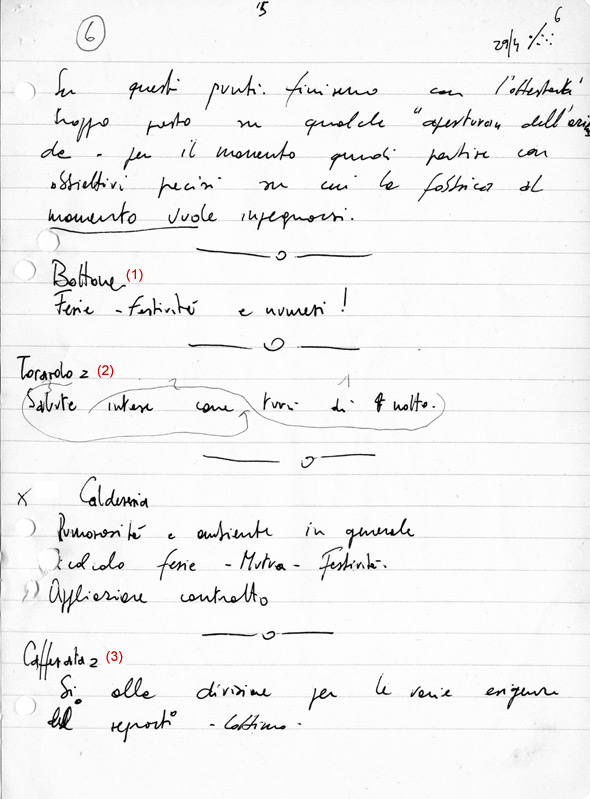 15
6
29/4 6
Su questi punti finiremo con l'
troppo presto su qualche "apertura dell'azien
da - per il momento quindi partire con
obbiettivi precisi su cui la fabbrica al
momento vuole impegnarsi.
Bottone (1)
Ferie - festività e numeri!
2 (2)
Salute intese come turni di notte.
2 1
x Caldereria
Rumorosità e ambiente in generale
calcolo ferie - Mutua - Festività.
Applicazione contratto
Cafferata 2 (3)
Si alla divisione per le varie esigenze
reparti - Cottimo -